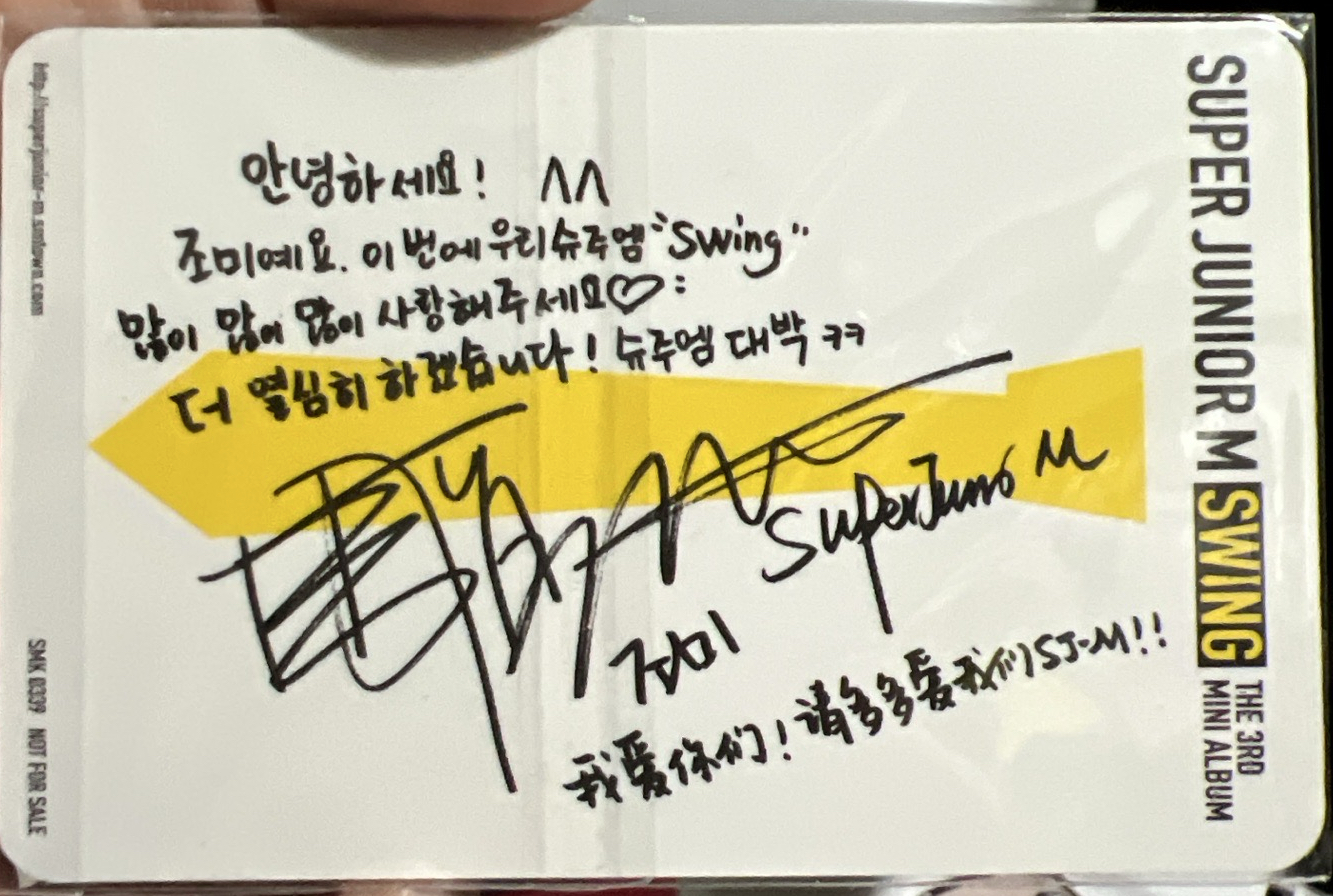 안녕하세요! ^^
조미예요. 이번에 우리 슈주엠 "Swing"
많이 많이 많이 사랑해주세요♡:
더 열심히 하겠습니다! 슈주엠 대박 ㅋㅋ
Super Junior M
조미
我爱你们! 请多多爱我们SJ-M!!
SUPER JUNIOR M SWING
THE 3RD
MINI ALBUM
http://superjunior-m.smtown.com
SMK 0339 NOT FOR SALE